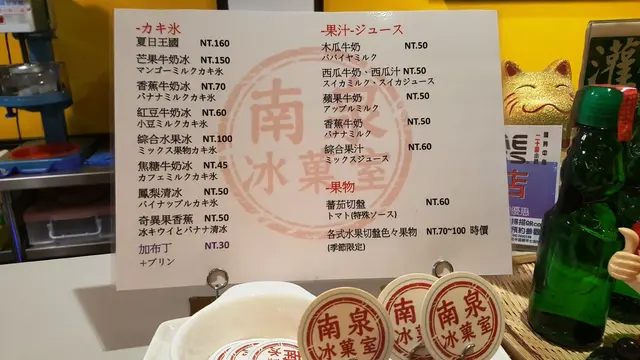 -カキ氷
夏日王國 NT.160
芒果牛奶冰 NT.150
マンゴーミルクカキ氷
香蕉牛奶冰 NT.70
バナナミルクカキ氷
紅豆牛奶冰 NT.60
小豆ミルクカキ氷
綜合水果冰 NT.100
ミックス果物カキ氷
焦糖牛奶冰 NT.45
カフェミルクカキ氷
鳳梨清冰 NT.50
パイナップルカキ氷
奇異果香蕉 NT.50
氷キウイとバナナ清冰
加布丁 NT.30
+プリン
-果汁-ジュース
木瓜牛奶 NT.50
パパイヤミルク
西瓜牛奶、西瓜汁 NT.50
スイカミルク、スイカジュース
蘋果牛奶 NT.50
アップルミルク
香蕉牛奶 NT.50
バナナミルク
綜合果汁 NT.60
ミックスジュース
-果物
蕃茄切盤 NT.60
トマト(特殊ソース)
各式水果切盤色々果物 NT.70~100 時價
(季節限定)
南泉
冰菓室
南泉
冰菓室
南
冰菓
南泉
冰菓室
店